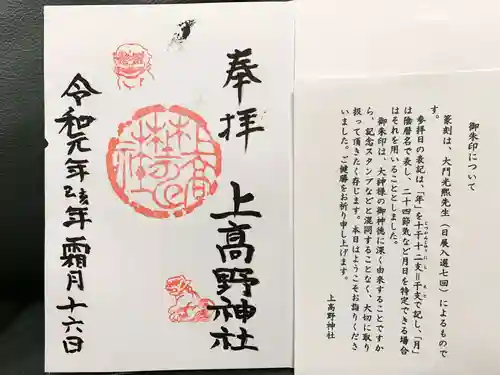 奉拝
上高野神社
令和元年己亥年霜月十六日
御朱印について
篆刻は、大門光熈先生(日展入選七回)によるもので
す。
参拝日の表記は、「年」を十干十二支=干支で記し、「月」
は陰暦名で表し、二十四節気など月日を特定できる場合
はそれを用いることとしました。
御朱印は、大神様の御神徳に深く由来することですか
ら、記念スタンプなどと混同することなく、大切に取り
扱って頂きたく存じます。本日はようこそお詣りくださ
いました。ご健勝をお祈り申し上げます。
上高野神社